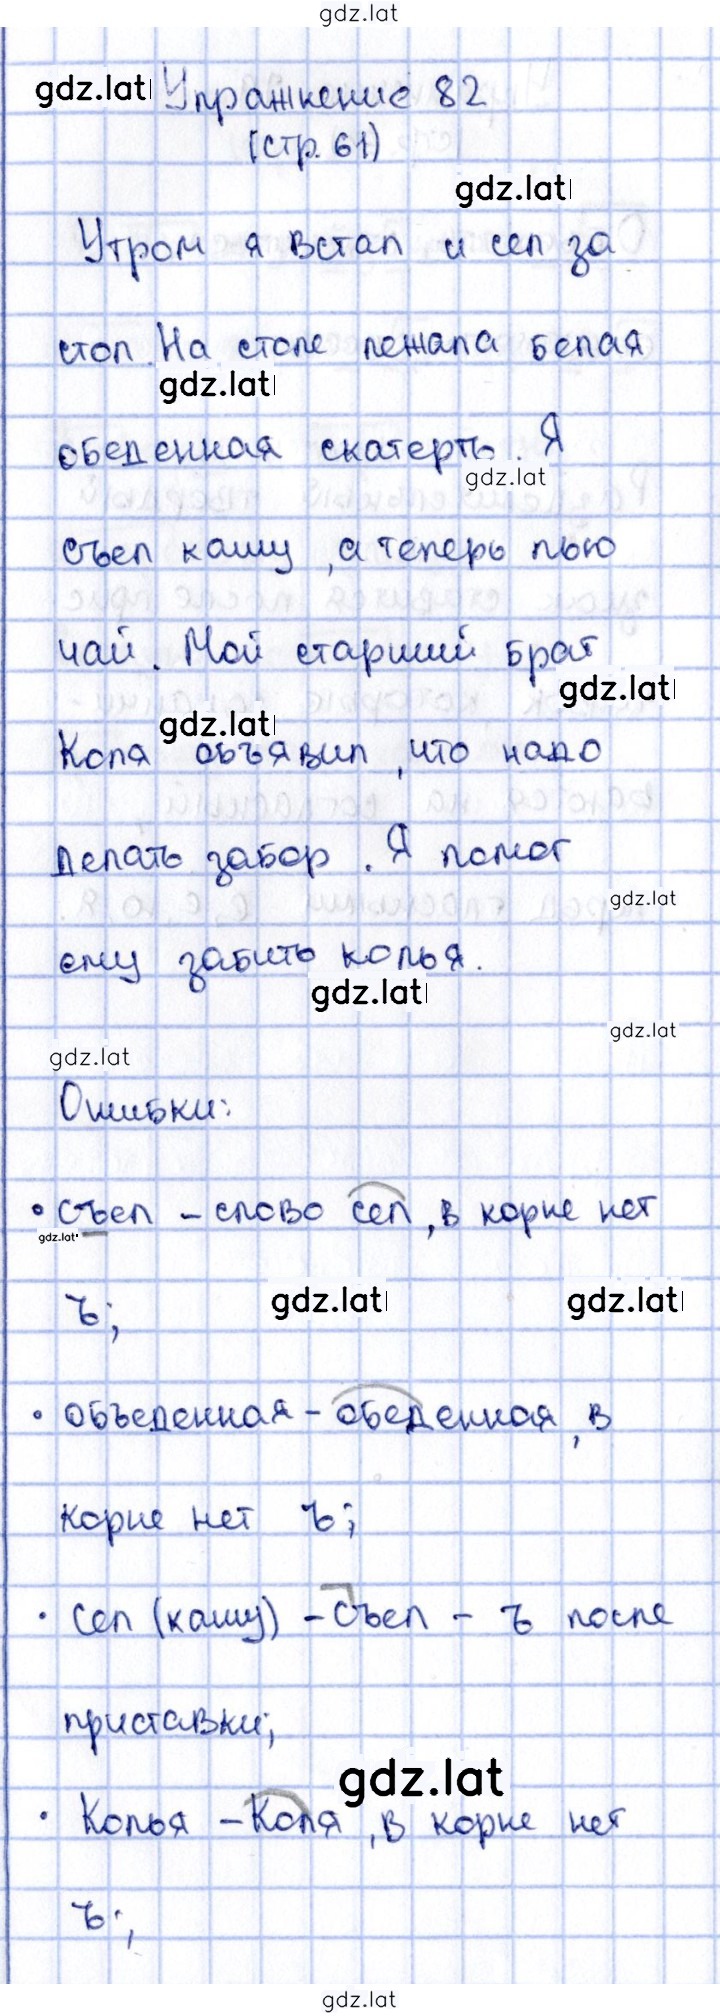 gdz.lat
gdz.lat Упражнение 82
(стр. 61)
gdz.lat
Утром я встал и сел за
стол. На столе лежала белая
gdz.lat
обеденная скатерть. Я
gdz.lat
съел кашу, а теперь пью
чай. Мой старший брат
gdz.lat
gdz.lat
Коля объявил, что надо
делать забор. Я помог
gdz.lat
ему забить колья.
gdz.lat
gdz.lat
gdz.lat
Ошибки:
• съел – слово сел, в корне нет
gdz.lat
ъ;
gdz.lat gdz.lat
• объеденная – обеденная, в
корне нет ъ;
• Сел (кашу) – съел – ъ после
приставки;
gdz.lat
• Колья – Коля, в корне нет
ъ;
gdz.lat